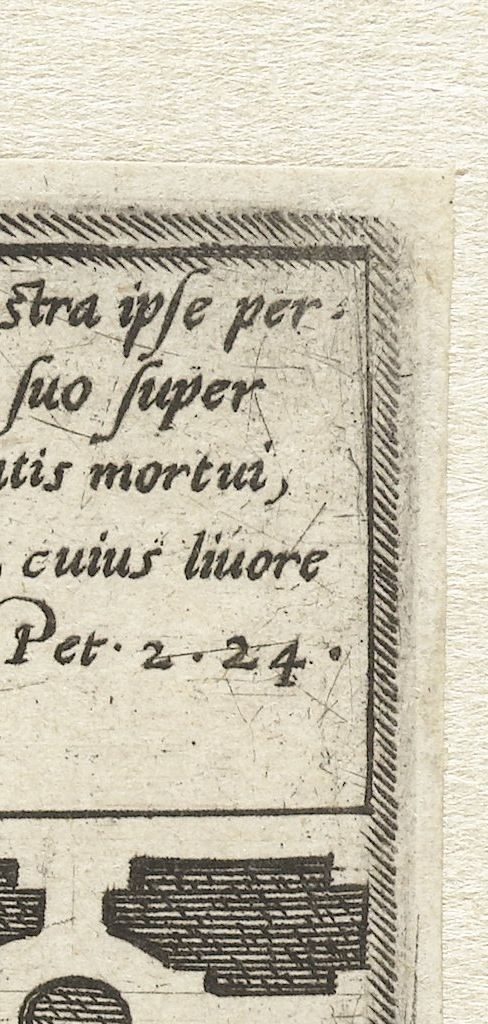 ſtra ipſe per-
ſuo ſuper
atis mortui,
, cuius liuore
Pet. 2. 24.